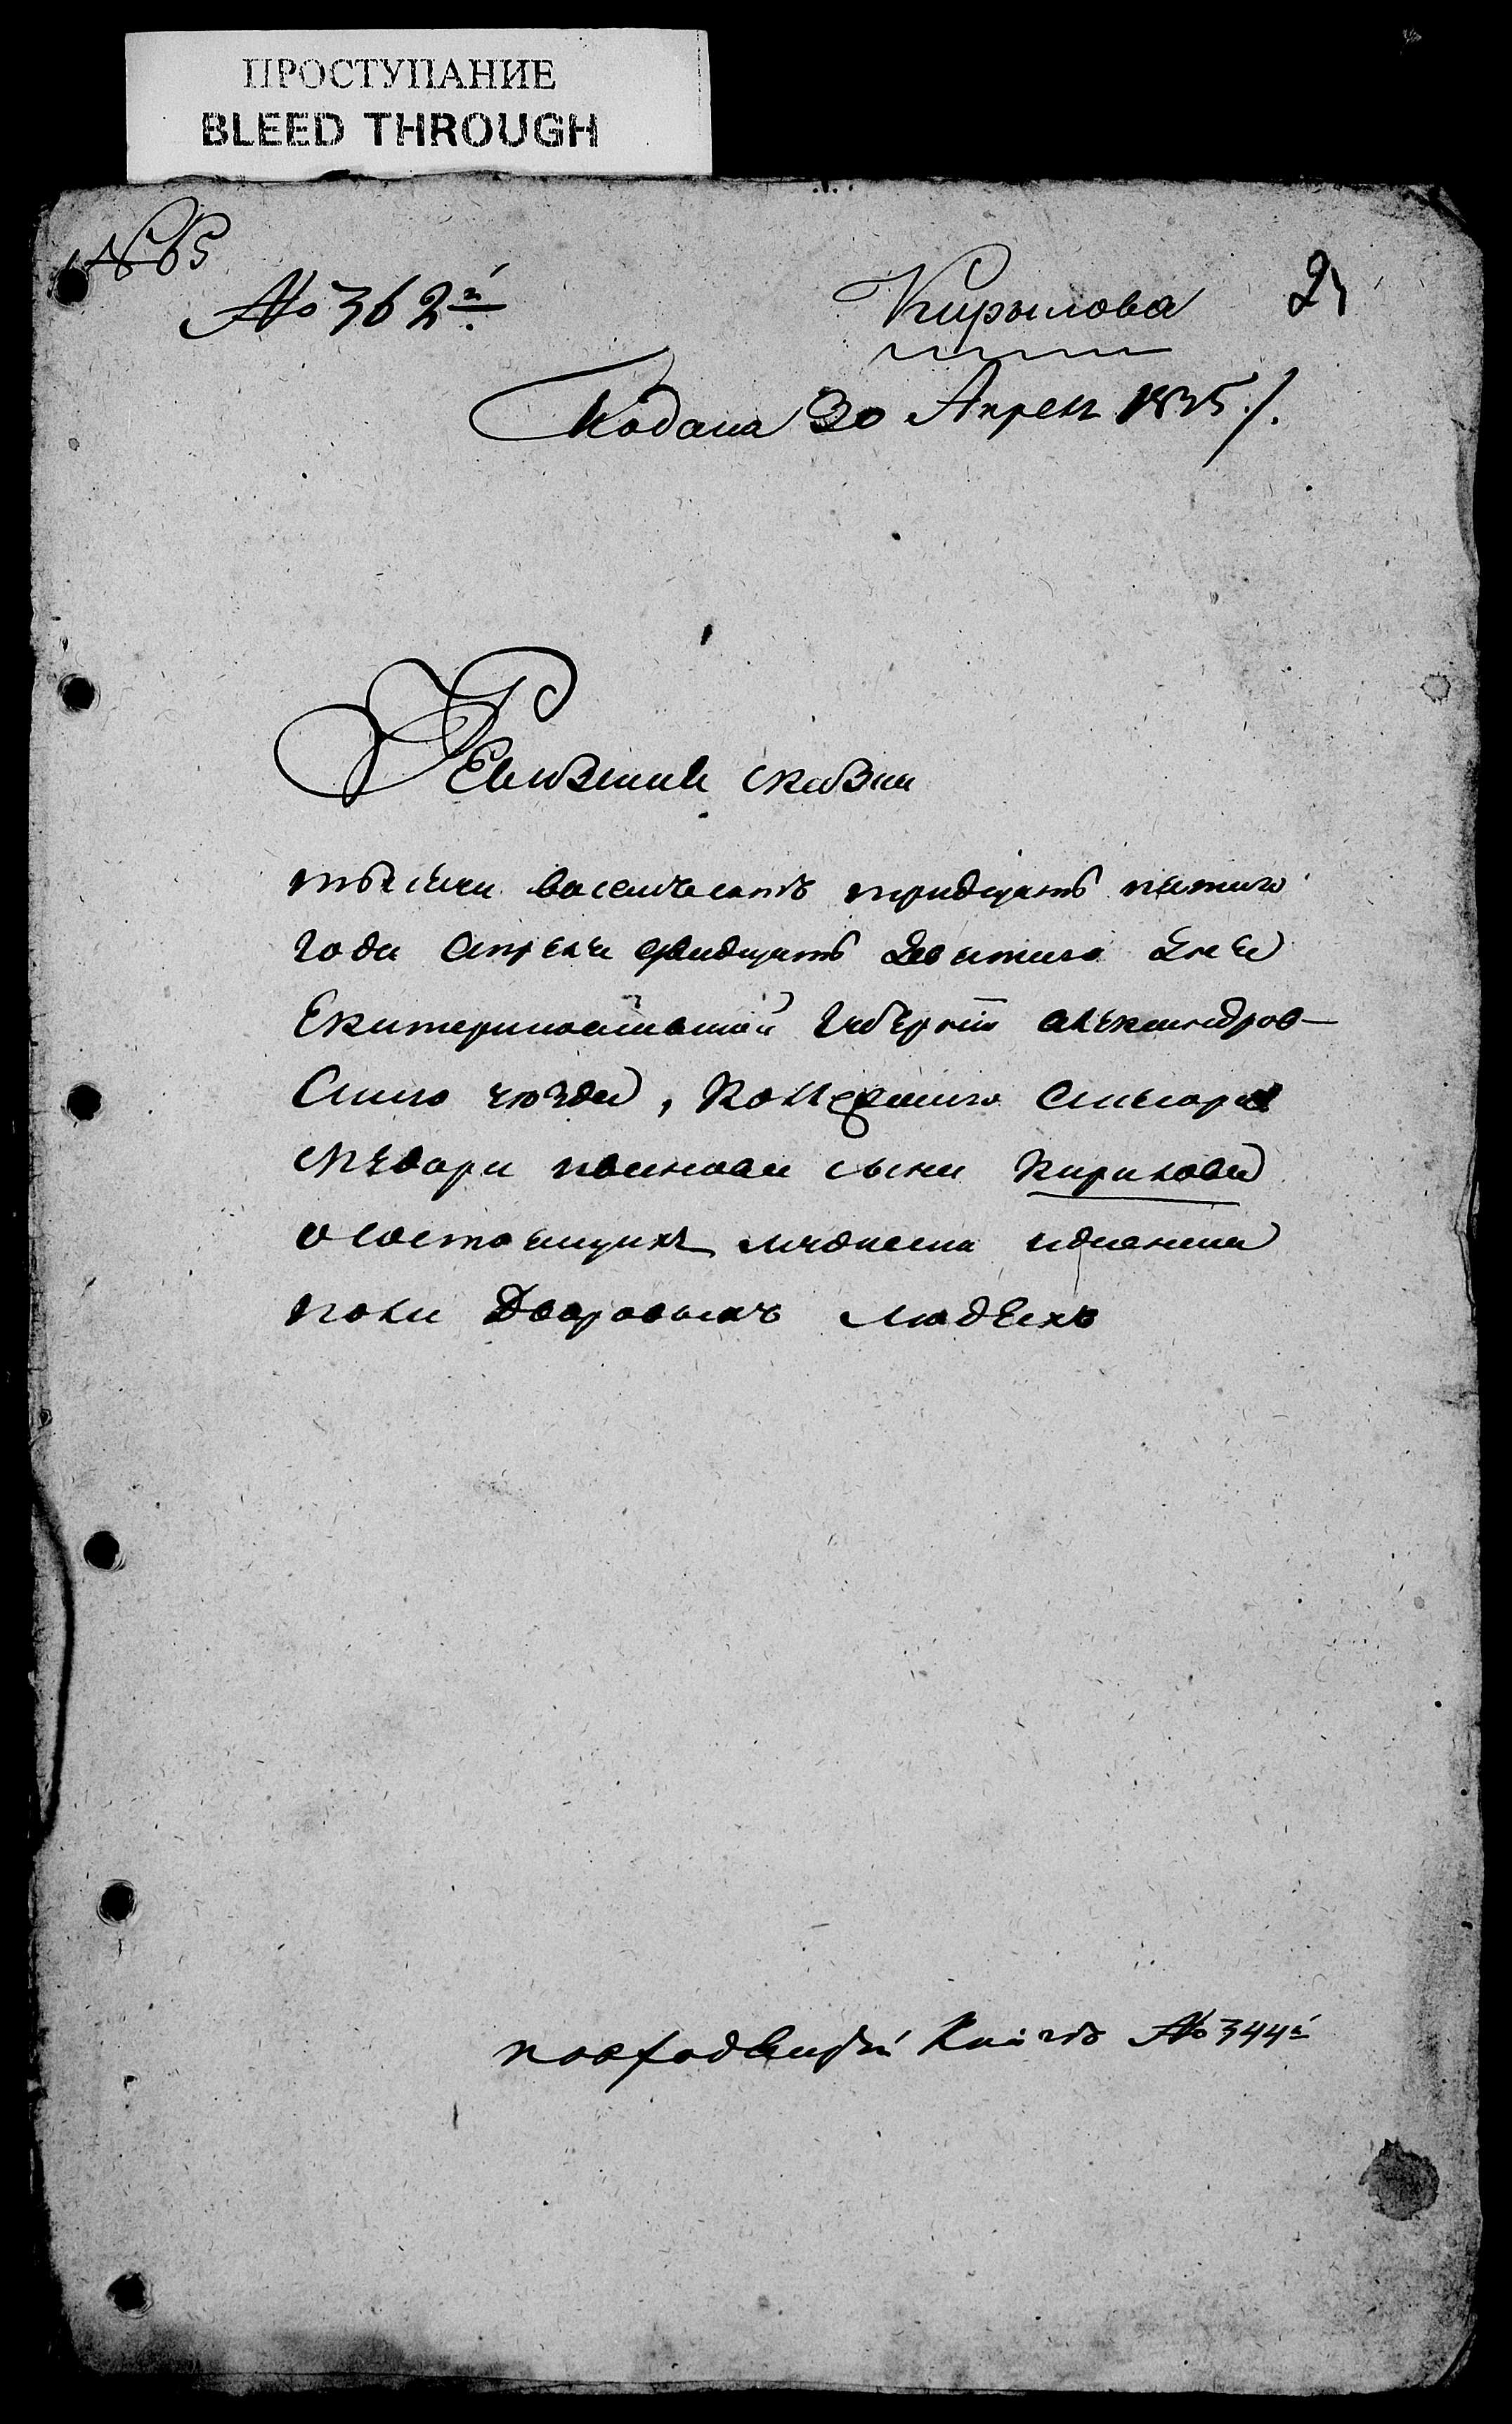 ПРОСТУПАНИЕ
BLEED THROUGH
№ 65
№ 362й
Кирылова
Подана 30 Апреля 1835 /.
Ревизская сказка
тысяча восемьсотъ тридцать пятаго
года апреля двадцать девятаго дня
Екатеринославской Губернии александров-
Скаго уезда, Коллежскаго
Иванова сына Кирилова
о состоящихъ мужеска
пола Дворовыхъ людехъ
Книге № 344й